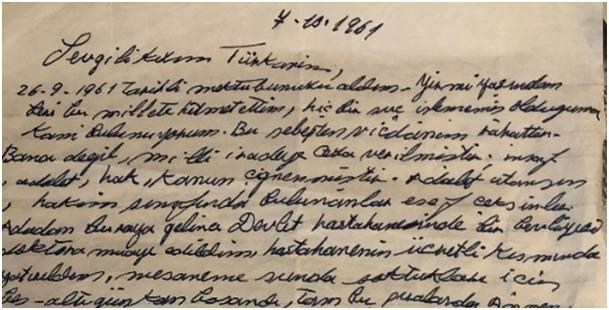 7-10-1961
Sevgili karım Türkanım,
26-9-1961 tarihli mektubunuzu aldım. Yirmi yaşımdan
beri bu millete hizmet ettim, hiç bir suç işlememiş olduguma
kani bulunuyorum. Bu sebepten vicdanım rahattır.
Bana degil, milli iradeye ceza verilmiştir. insaf
, adalet, hak, kanun çignenmiştir. Adalet utansın
, hakim sınıfında bulunanlar esef çeksinler.
Adadan buraya gelince Devlet hastahanesinde bir
doktora muaye edildim, hastahanenin ücretli kısmında
yatırıldım, mesaneme sonda soktukları için
beş-altı gün kan boşandı, tam bu sıralarda